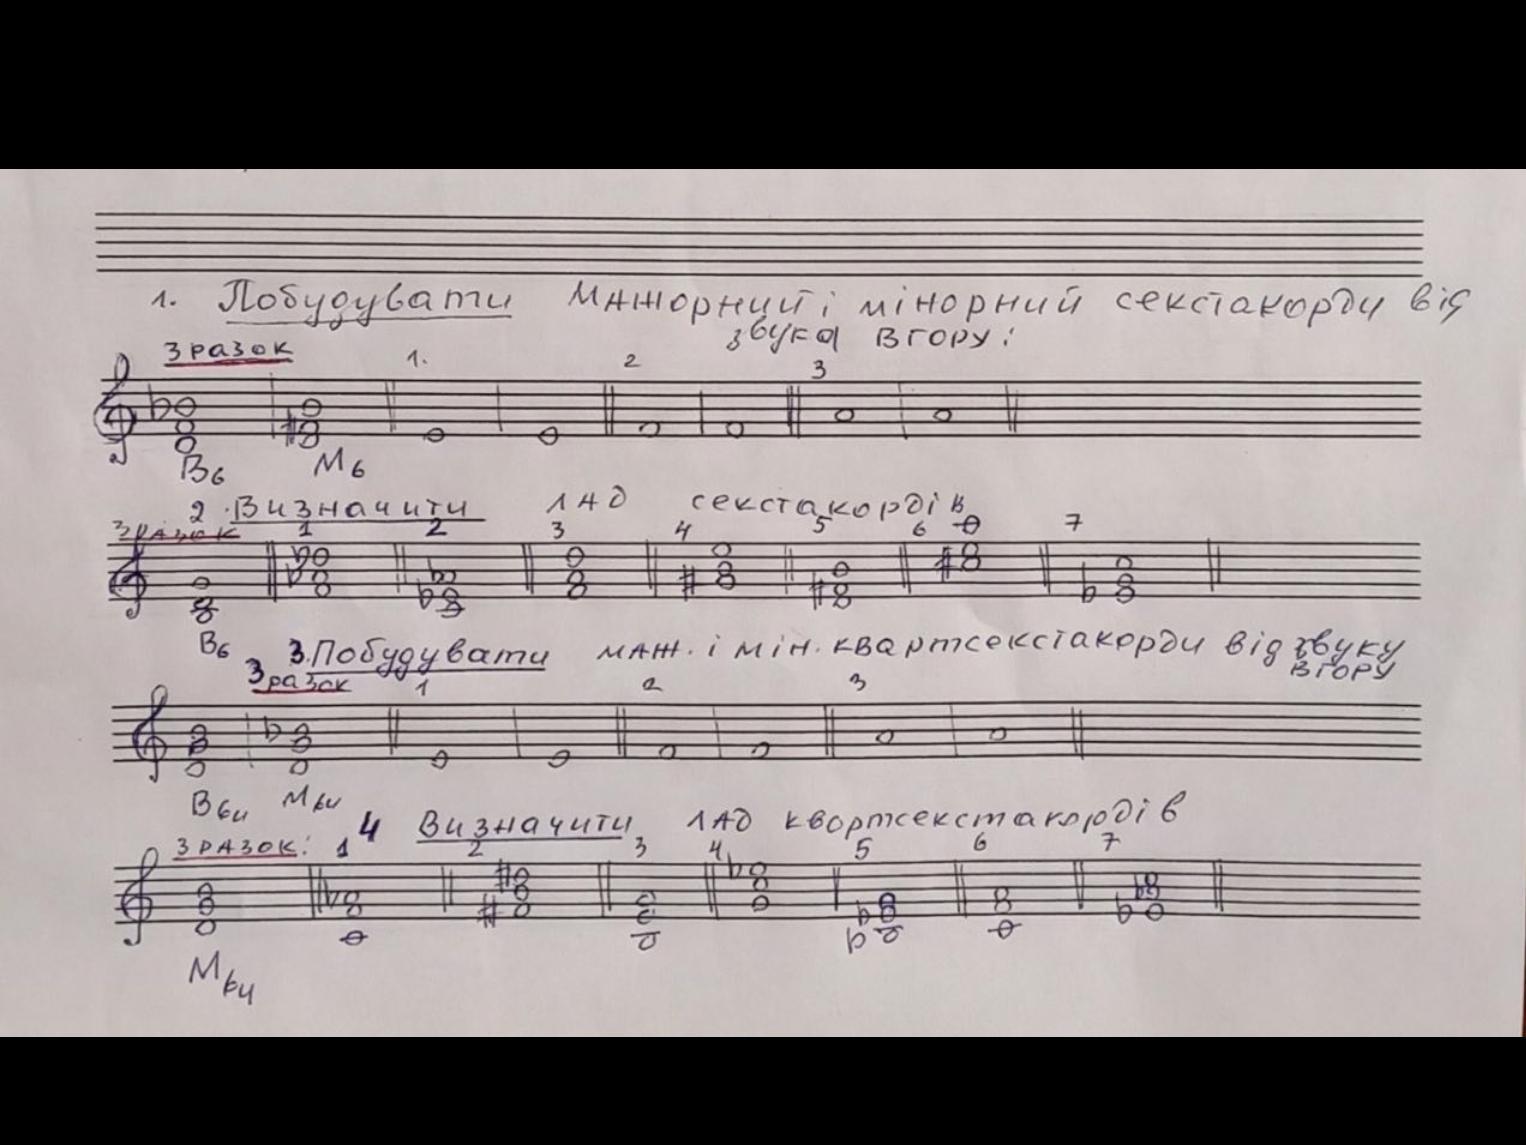 1. Побудувати мажорний і мінорний секстакорди від
звука вгору:
Зразок 1. 2 3
В6 М6
2. Визначити лад секстакордів
Зразок 1 2 3 4 5 6 7
В6
3. Побудувати маж. і мін. квартсекстакорди від звуку
вгору
Зразок 1 2 3
В64 М64
4 Визначити лад квартсекстакордів
Зразок: 1 2 3 4 5 6 7
М64